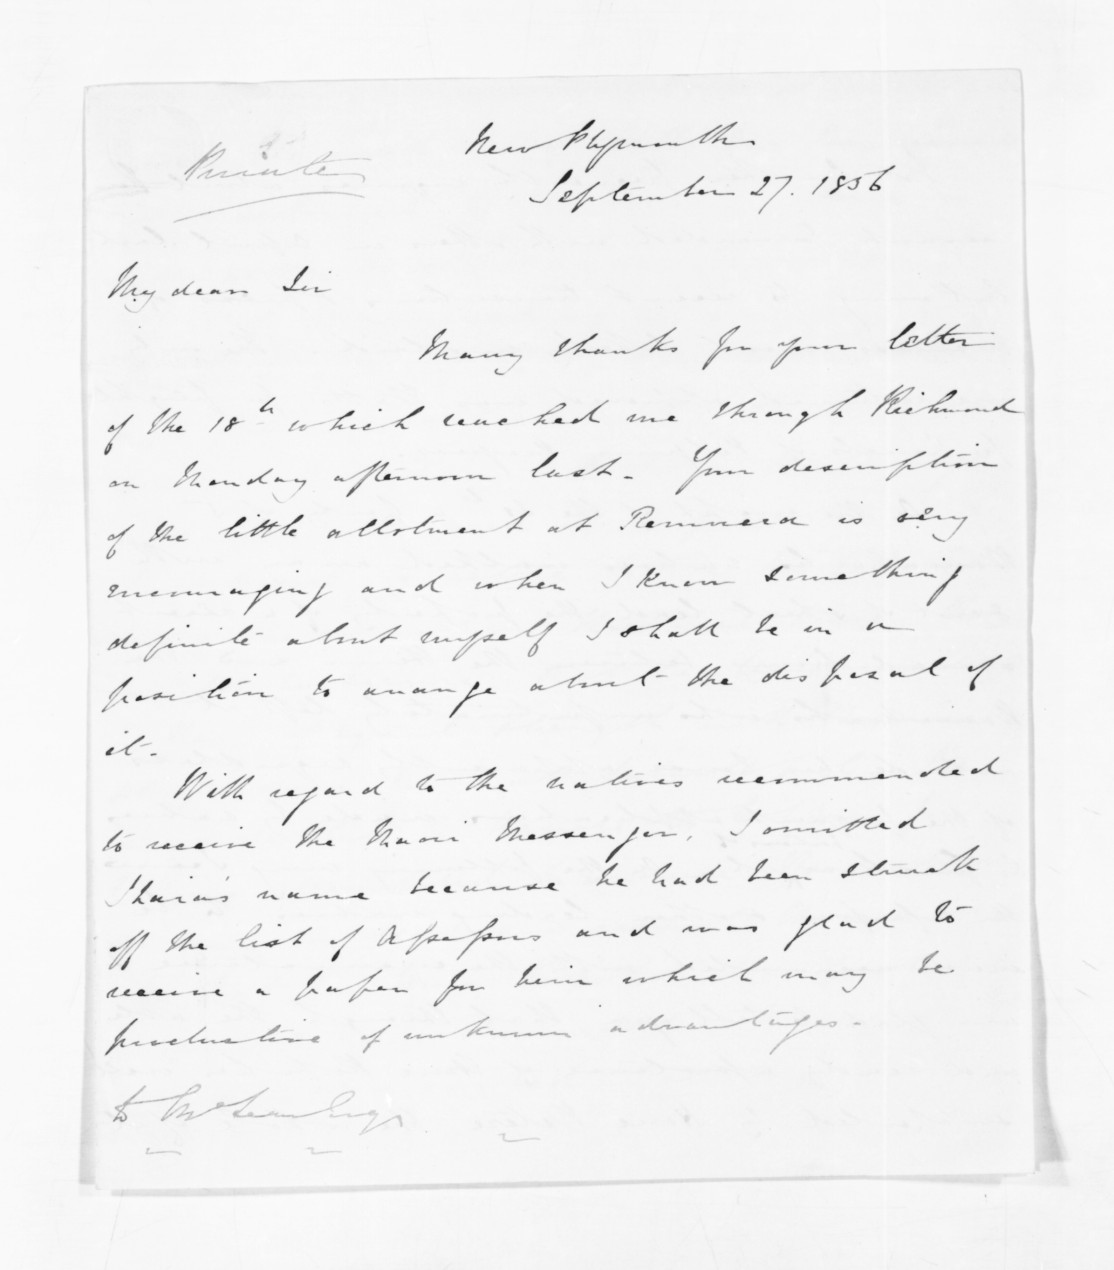 Private
New Plymouth
September 27. 1856
My dear Sir
Many thanks for your letter
of the 18th which reached me through Richmond
on Monday afternoon last. Your description
of the little allotment at Remuera is very
encouraging and when I know something
definite about myself I shall be in a
position to arrange about the disposal of
it.
With regard to the natives recommended
to receive the Maori Messenger, I omitted
Ihaia's name because he had been struck
off the list of Assessors and was glad to
receive a paper for him which may be
productive of unknown advantages.
to McLean Esqr